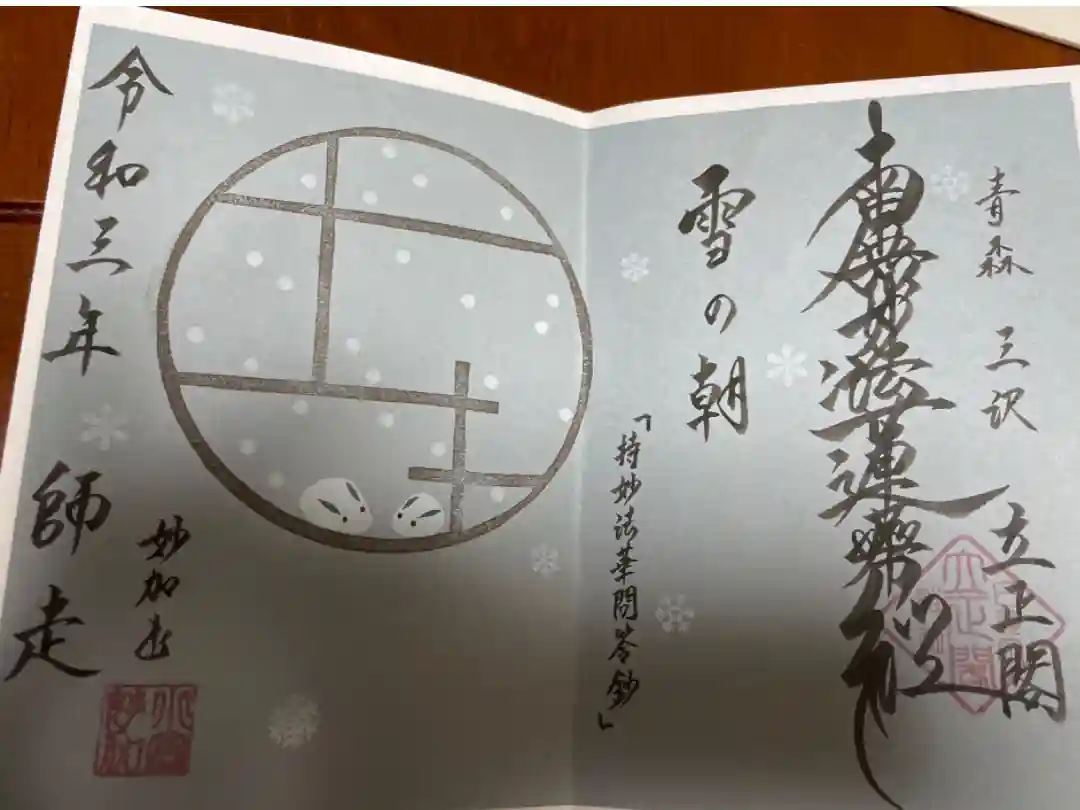 青森 三沢 立正閣
南無妙法蓮華経
雪の朝
「持妙法華問答鈔」
妙加
令和三年 師走
立正閣